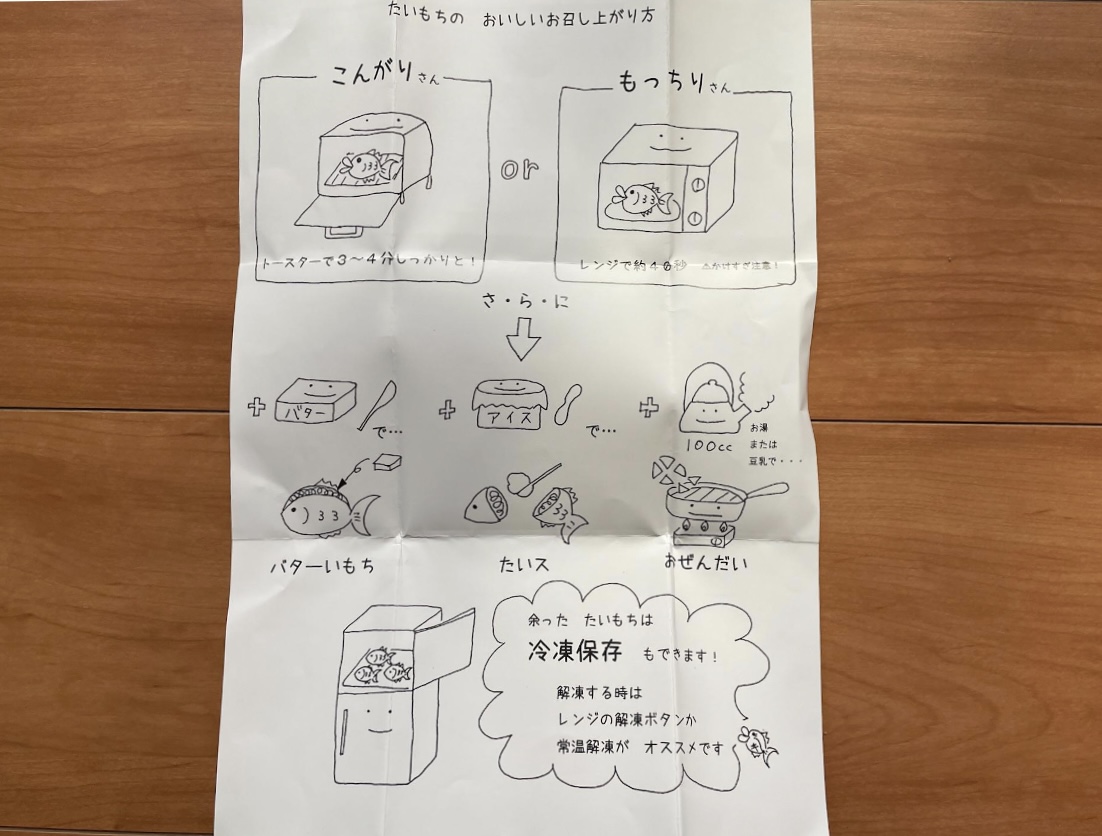 たいもちの おいしいお召し上がり方
こんがりさん
もっちりさん
or
トースターで3〜4分しっかりと!
レンジで約40秒 ⚠かけすぎ注意!
さ・ら・に
+ バター で…
+ アイス で…
+ 100cc
お湯
または
豆乳で・・・
バターいもち
たいス
おぜんだい
余った たいもちは
冷凍保存 もできます!
解凍する時は
レンジの解凍ボタンか
常温解凍が オススメです